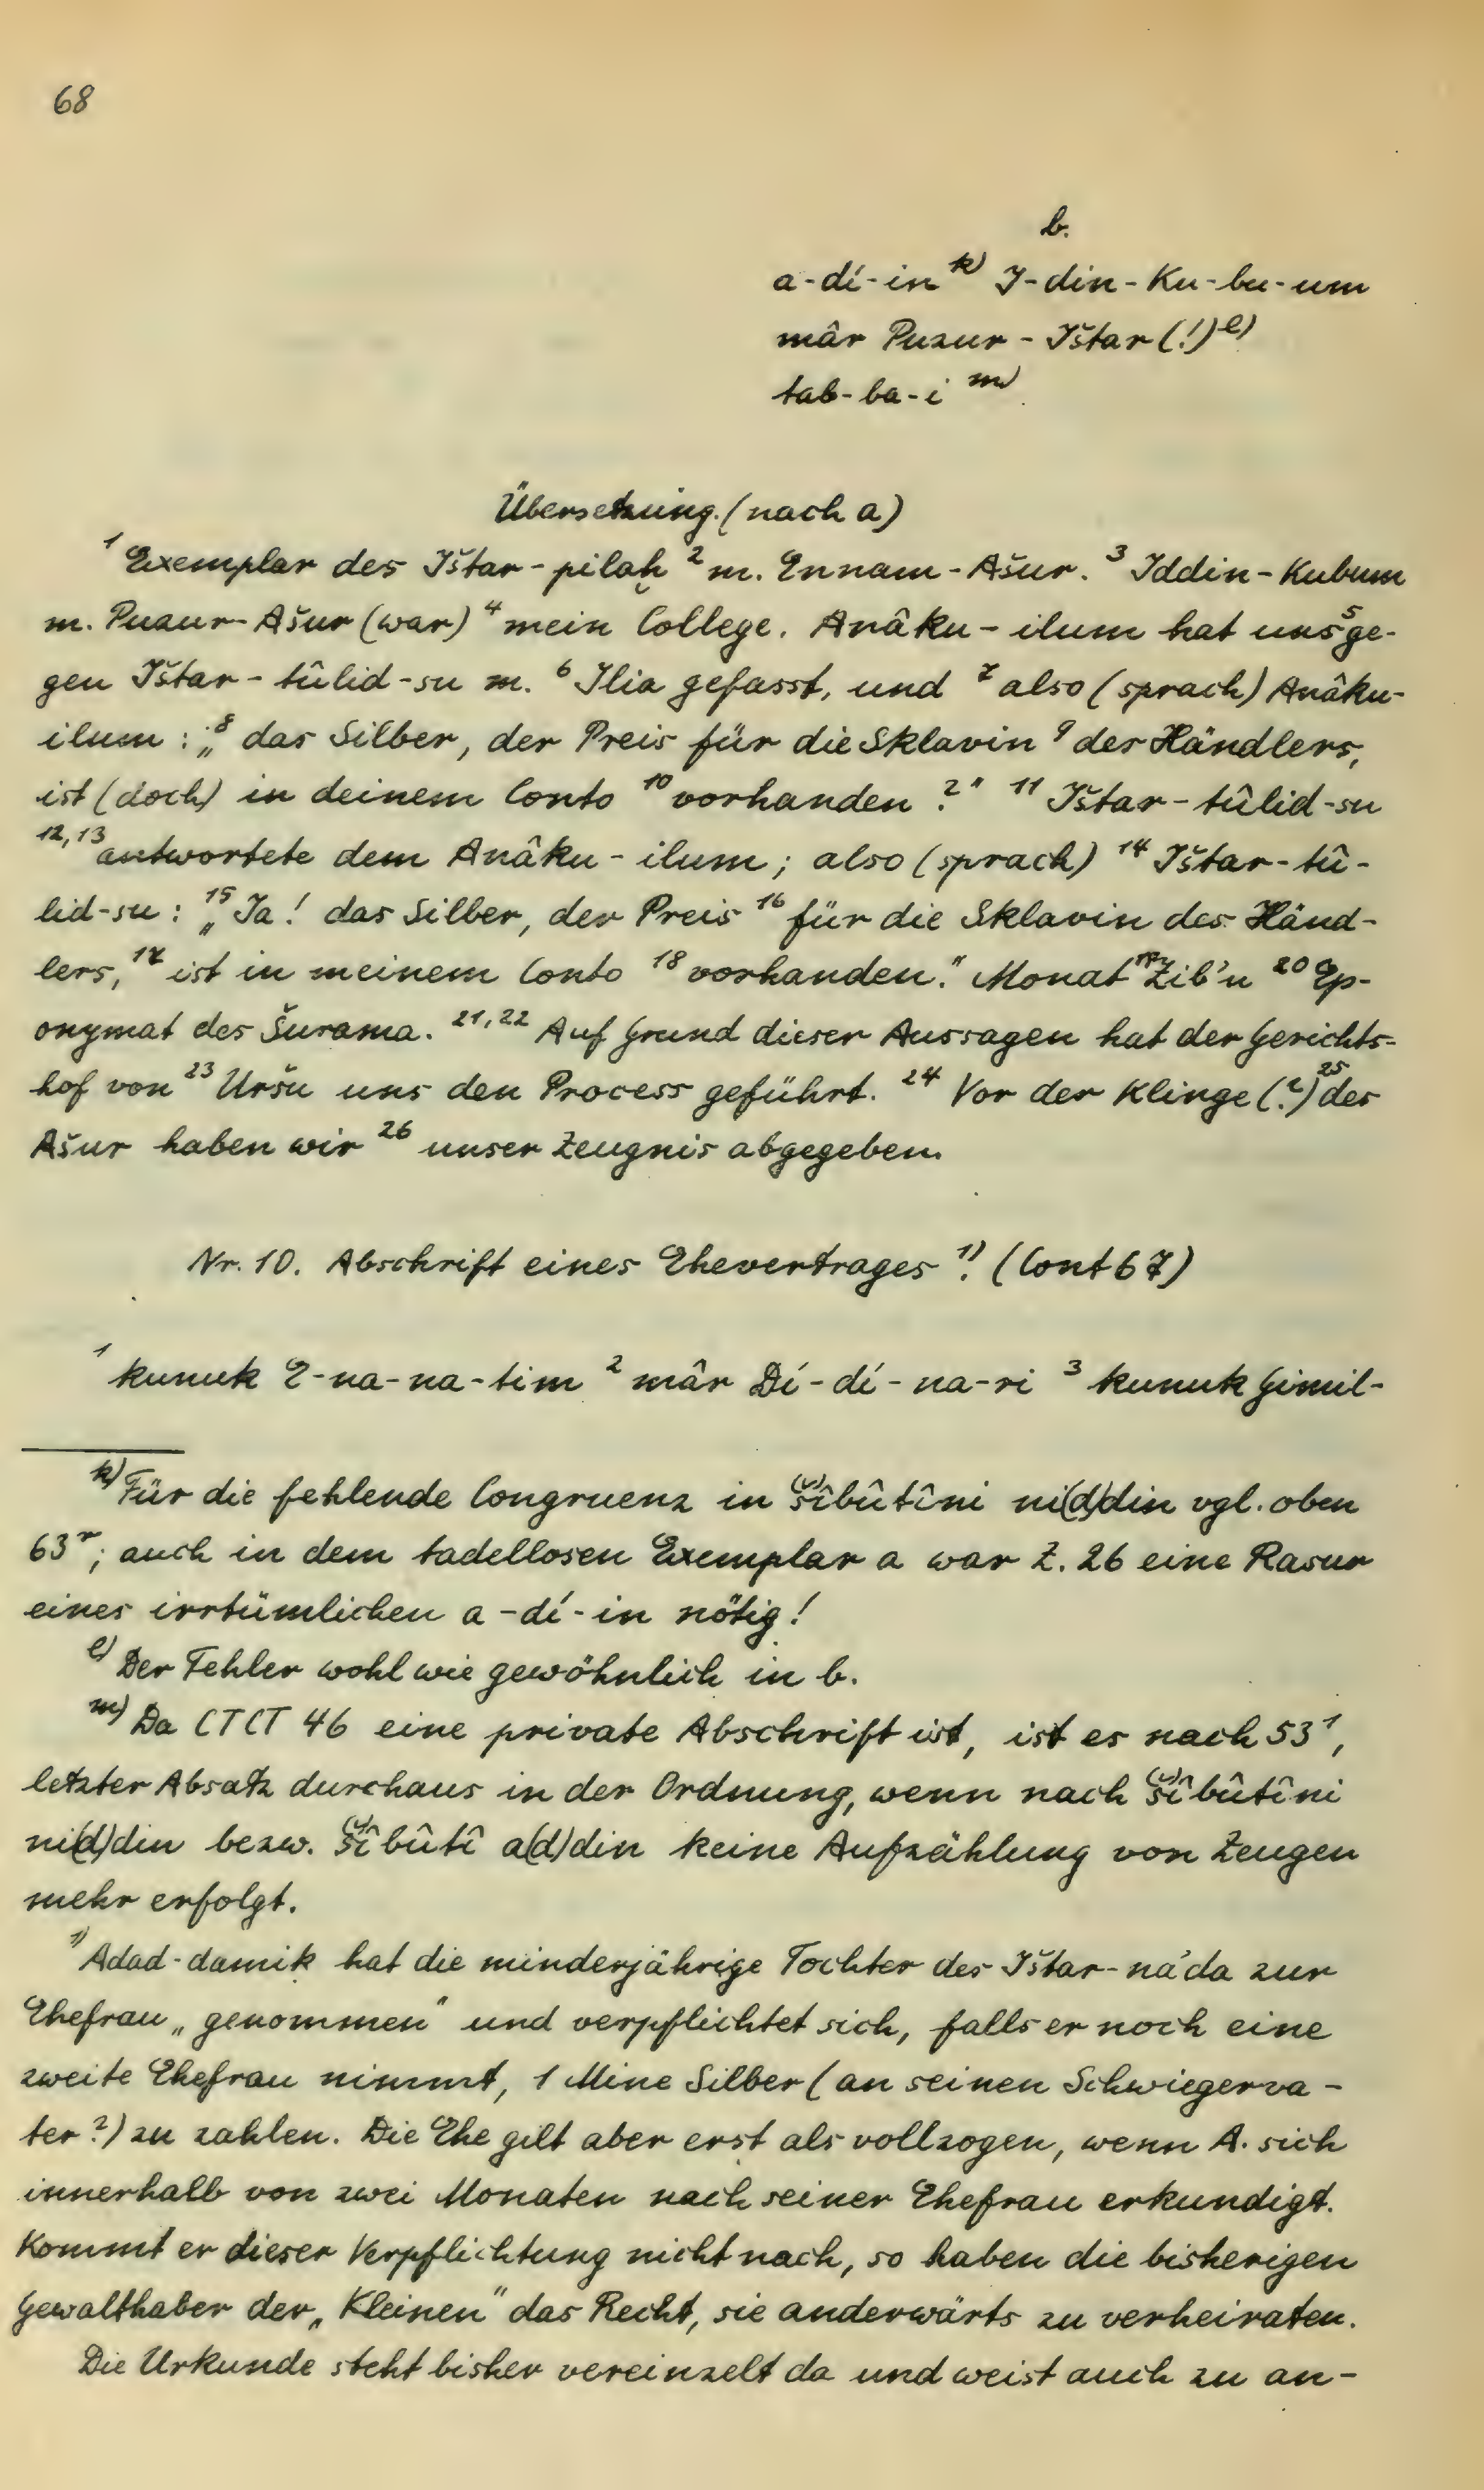 68
b.
a-dí-in k) I-din-Ku-bu-um
mâr Puzur-Ištar(!) l)
tab-ba-i m)
Übersetzung. (nach a)
1 Exemplar des Ištar-pilaḫ 2 m. Ennam-Ašur. 3 Iddin-Kubum
m. Puzur-Ašur (war) 4 mein College. Anâku-ilum hat uns 5 ge-
gen Ištar-tûlid-su m. 6 Ilia gefasst, und 7 also (sprach) Anâku-
ilum: „8 das Silber, der Preis für die Sklavin 9 des Händlers,
ist (doch) in deinem Conto 10 vorhanden?" 11 Ištar-tûlid-su
12, 13 antwortete dem Anâku-ilum; also (sprach) 14 Ištar-tû-
lid-su: 15 „Ja! das Silber, der Preis 16 für die Sklavin des Händ-
lers, 17 ist in meinem Conto 18 vorhanden." Monat 19 Zib'u 20 Ep-
onymat des Šurama. 21, 22 Auf Grund dieser Aussagen hat der Gerichts-
hof von 23 Uršu uns den Process geführt. 24 Vor der Klinge (?) 25 des
Ašur haben wir 26 unser Zeugnis abgegeben.
Nr. 10. Abschrift eines Ehevertrages 1). (Cont 67)
1 kunuk E-na-na-tim 2 mâr Dí-dí-na-ri 3 kunuk Gimil-
k) Für die fehlende Congruenz in š(s)îbûtîni ni(d)din vgl. oben
63 r; auch in dem tadellosen Exemplar a war Z. 26 eine Rasur
eines irrtümlichen a-dí-in nötig!
l) Der Fehler wohl wie gewöhnlich in b.
m) Da CTCT 46 eine private Abschrift ist, ist es nach 53 1,
letzter Absatz durchaus in der Ordnung, wenn nach š(s)îbûtîni
ni(d)din bezw. š(s)îbûtî a(d)din keine Aufzählung von Zeugen
mehr erfolgt.
1) Adad-damiḳ hat die minderjährige Tochter des Ištar-nâ'da zur
Ehefrau „genommen" und verpflichtet sich, falls er noch eine
zweite Ehefrau nimmt, 1 Mine Silber (an seinen Schwiegerva-
ter?) zu zahlen. Die Ehe gilt aber erst als vollzogen, wenn A. sich
innerhalb von zwei Monaten nach seiner Ehefrau erkundigt.
Kommt er dieser Verpflichtung nicht nach, so haben die bisherigen
Gewalthaber der „Kleinen" das Recht, sie anderwärts zu verheiraten.
Die Urkunde steht bisher vereinzelt da und weist auch zu an-